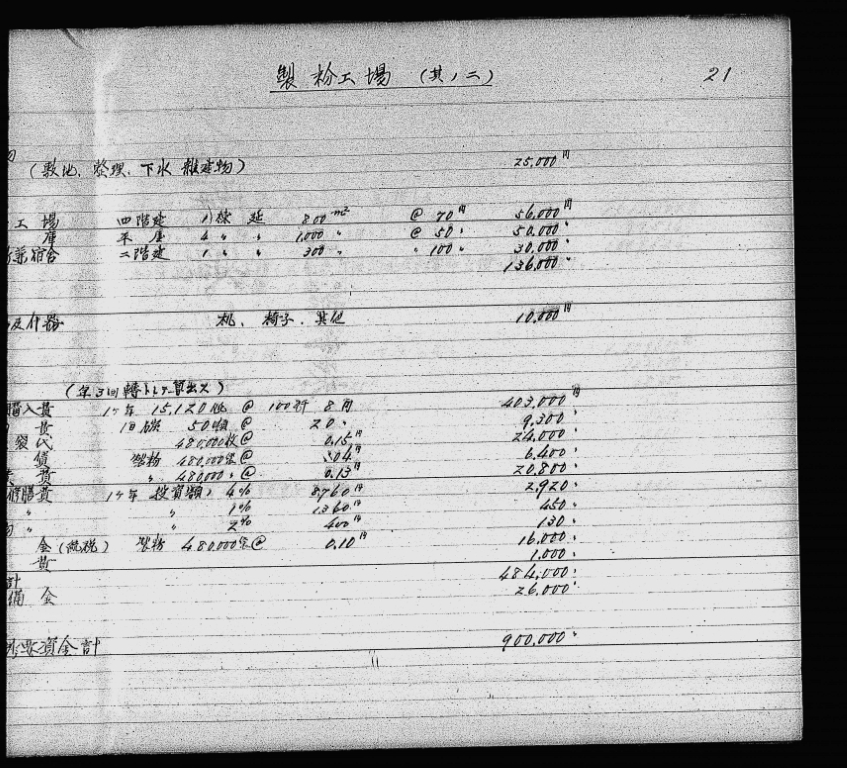 製粉工場 (其ノ二) 21
(敷地、整理、下水 雑建物) 25,000円
工場 四階建 1棟 延 800m² @ 70円 56,000円
庫 平屋 4 〃 〃 1,000 〃 @ 50 〃 50,000 〃
宿舎 二階建 1 〃 〃 300 〃 〃 100 〃 30,000 〃
136,000 〃
及什器 机、椅子、其他 10,000円
(年3回轉トシテ算出ス)
購入費 1ヶ年 15,120 @ 100斤 8円 403,000円
費 50 @ 20 〃 9,300 〃
袋代 480,000枚 @ 0.15円 24,000 〃
製粉 480,000袋 @ .04円 6,400 〃
費 〃 480,000 〃 @ 0.13円 20,800 〃
費 1ヶ年 投資額ノ 4% 8,760円 2,920 〃
〃 〃 1% 1,360円 450 〃
〃 〃 2% 400円 130 〃
金(統税) 製粉 480,000袋 @ 0.10円 16,000 〃
費 1,000 〃
計 484,000 〃
備金 26,000 〃
要資金計 900,000 〃